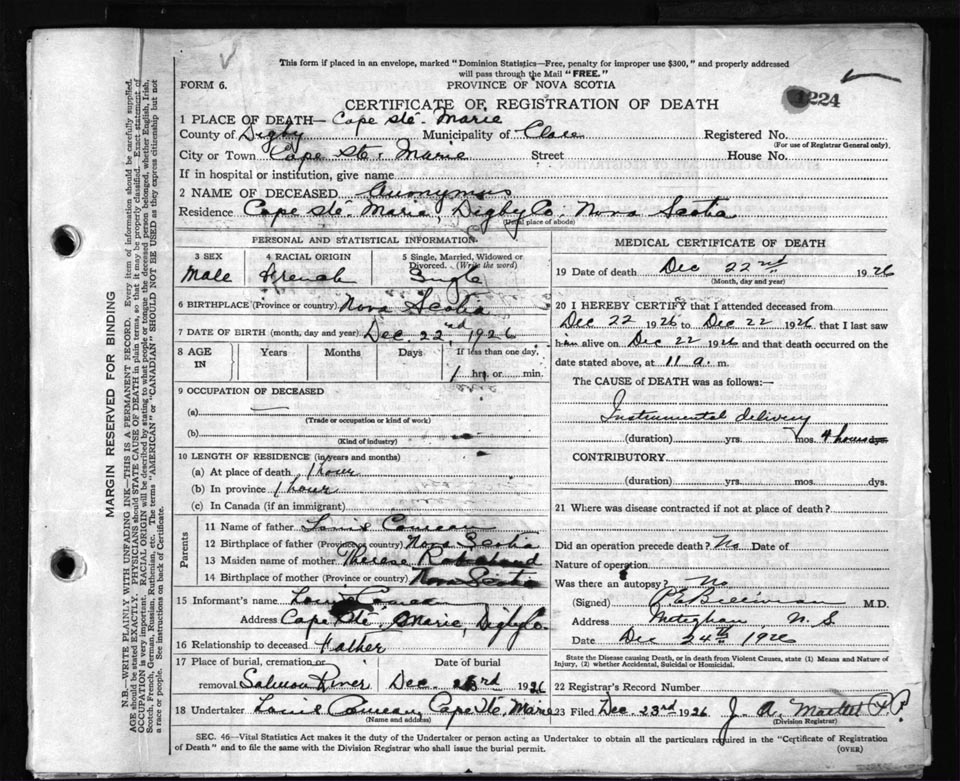 This form if placed in an envelope, marked "Dominion Statistics—Free, penalty for improper use $300," and properly addressed
will pass through the Mail "FREE."
FORM 6.
PROVINCE OF NOVA SCOTIA
1224
CERTIFICATE OF REGISTRATION OF DEATH
1 PLACE OF DEATH— Cape Ste. Marie
County of Digby Municipality of Clare Registered No.
(For use of Registrar General only).
City or Town Cape Ste. Marie Street House No.
If in hospital or institution, give name
2 NAME OF DECEASED Anonymous
Residence Cape Ste. Marie, Digby Co. Nova Scotia
(Usual place of abode)
PERSONAL AND STATISTICAL INFORMATION
3 SEX 4 RACIAL ORIGIN 5 Single, Married, Widowed or
Divorced. (Write the word)
Male French Single
6 BIRTHPLACE (Province or country) Nova Scotia
7 DATE OF BIRTH (month, day and year) Dec. 22nd, 1926
8 AGE IN Years Months Days If less than one day,
1 hrs. or min.
9 OCCUPATION OF DECEASED
(a) —
(Trade or occupation or kind of work)
(b)
(Kind of industry)
10 LENGTH OF RESIDENCE (in years and months)
(a) At place of death 1 hour
(b) In province 1 hour
(c) In Canada (if an immigrant)
Parents
11 Name of father Louis Comeau
12 Birthplace of father (Province or country) Nova Scotia
13 Maiden name of mother Therese
14 Birthplace of mother (Province or country) Nova Scotia
15 Informant's name Louis Comeau
Address Cape Ste. Marie, Digby Co.
16 Relationship to deceased Father
17 Place of burial, cremation or Date of burial
removal Salmon River Dec. 23rd 1926
18 Undertaker Louis Comeau, Cape Ste. Marie
(Name and address)
MEDICAL CERTIFICATE OF DEATH
19 Date of death Dec 22nd 1926
(Month, day and year)
20 I HEREBY CERTIFY that I attended deceased from
Dec 22 1926 to Dec 22 1926, that I last saw
him alive on Dec 22 1926 and that death occurred on the
date stated above, at 11 a. m.
The CAUSE of DEATH was as follows:—
Instrumental delivery
(duration) yrs. mos. 4 hours
CONTRIBUTORY
(duration) yrs. mos. dys.
21 Where was disease contracted if not at place of death?
Did an operation precede death? No Date of
Nature of operation
Was there an autopsy? No
(Signed) M.D.
Address Meteghan, N. S.
Date Dec 24th 1926
State the Disease causing Death, or in death from Violent Causes, state (1) Means and Nature of
Injury, (2) whether Accidental, Suicidal or Homicidal.
22 Registrar's Record Number
23 Filed Dec 23rd 1926 J. A.
(Division Registrar)
SEC. 46—Vital Statistics Act makes it the duty of the Undertaker or person acting as Undertaker to obtain all the particulars required in the "Certificate of Registration
of Death" and to file the same with the Division Registrar who shall issue the burial permit.
(OVER)
MARGIN RESERVED FOR BINDING
N.B.—WRITE PLAINLY WITH UNFADING INK—THIS IS A PERMANENT RECORD. Every item of information should be carefully supplied.
AGE should be stated EXACTLY. PHYSICIANS should STATE CAUSE OF DEATH in plain terms, so that it may be properly classified. Exact statement of
OCCUPATION is very important. RACIAL ORIGIN will be described by stating to what people or tongue the deceased person belonged, whether English, Irish,
Scotch, French, German, Russian, Ruthenian, etc. The terms "AMERICAN" or "CANADIAN" SHOULD NOT BE USED as they express citizenship but not
a race or people. See instructions on back of Certificate.